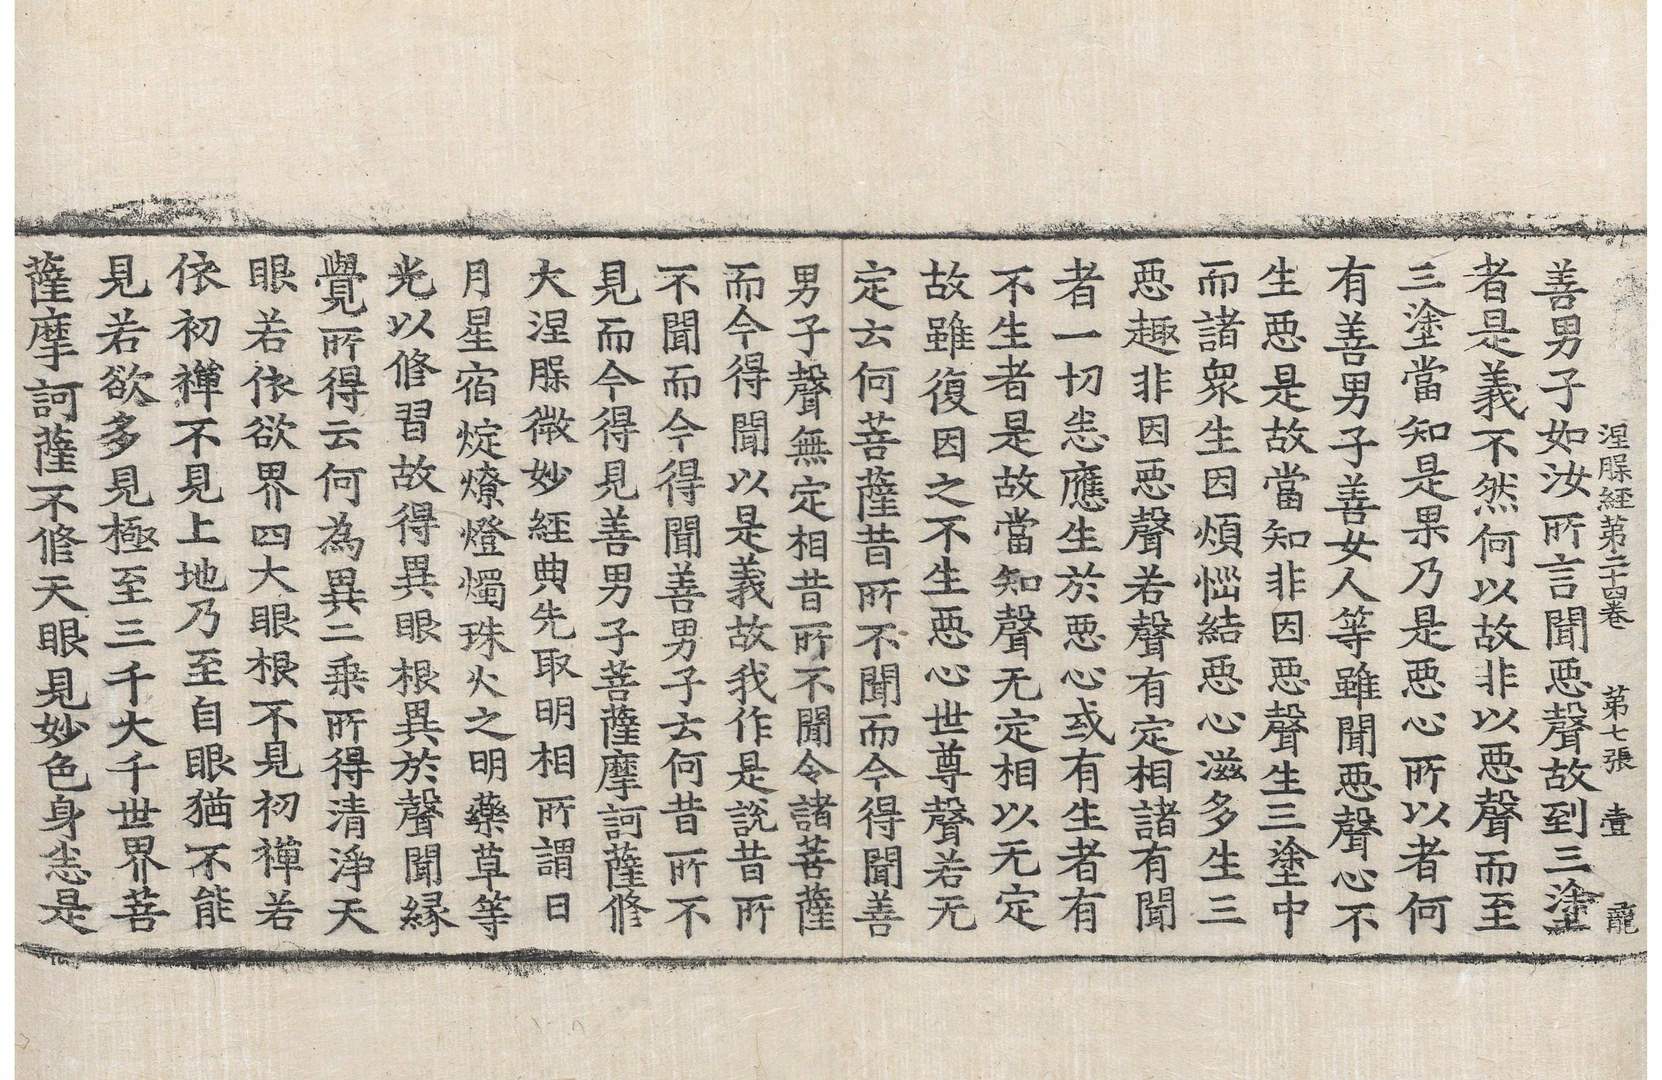 涅槃經第二十四卷 第七張 壹 龍
善男子如汝所言聞惡聲故到三塗
者是義不然何以故非以惡聲而至
三塗當知是果乃是惡心所以者何
有善男子善女人等雖聞惡聲心不
生惡是故當知非因惡聲生三塗中
而諸衆生因煩惱結惡心滋多生三
惡趣非因惡聲若聲有定相諸有聞
者一切悉應生於惡心或有生者有
不生者是故當知聲无定相以无定
故雖復因之不生惡心世尊聲若无
定云何菩薩昔所不聞而今得聞善
男子聲無定相昔所不聞令諸菩薩
而今得聞以是義故我作是說昔所
不聞而今得聞善男子云何昔所不
見而今得見善男子菩薩摩訶薩修
大涅槃微妙經典先取明相所謂日
月星宿㷮燎燈燭珠火之明藥草等
光以修習故得異眼根異於聲聞緣
覺所得云何為異二乘所得清淨天
眼若依欲界四大眼根不見初禪若
依初禪不見上地乃至自眼猶不能
見若欲多見極至三千大千世界菩
薩摩訶薩不修天眼見妙色身悉是